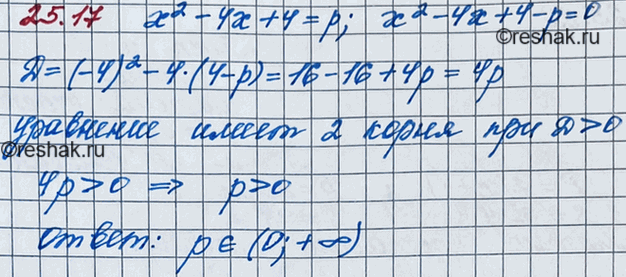 25.17 x² - 4x + 4 = p; x² - 4x + 4 - p = 0
©reshak.ru
D = (-4)² - 4·(4-p) = 16 - 16 + 4p = 4p
уравнение имеет 2 корня при D > 0
©reshak.ru
4p > 0 ⇒ p > 0
Ответ: p ∈ (0; +∞)